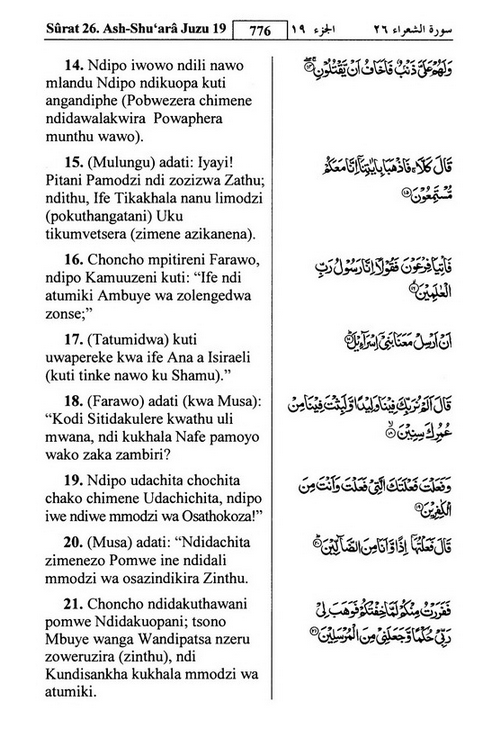 Sûrat 26. Ash-Shu‘arâ Juzu 19 776 الجزء ١٩ سورة الشعراء ٢٦
14. Ndipo iwowo ndili nawo
mlandu Ndipo ndikuopa kuti
angandiphe (Pobwezera chimene
ndidawalakwira Powaphera
munthu wawo).
وَلَهُمْ عَلَيَّ ذَنْبٌ فَأَخَافُ أَنْ يَقْتُلُونِ ١٤
15. (Mulungu) adati: Iyayi!
Pitani Pamodzi ndi zozizwa Zathu;
ndithu, Ife Tikakhala nanu limodzi
(pokuthangatani) Uku
tikumvetsera (zimene azikanena).
قَالَ كَلَّا ۖ فَاذْهَبَا بِآيَاتِنَا ۖ إِنَّا مَعَكُمْ
مُسْتَمِعُونَ ١٥
16. Choncho mpitireni Farawo,
ndipo Kamuuzeni kuti: “Ife ndi
atumiki Ambuye wa zolengedwa
zonse;”
فَأْتِيَا فِرْعَوْنَ فَقُولَا إِنَّا رَسُولُ رَبِّ
الْعَالَمِينَ ١٦
17. (Tatumidwa) kuti
uwapereke kwa ife Ana a Isiraeli
(kuti tinke nawo ku Shamu).”
أَنْ أَرْسِلْ مَعَنَا بَنِي إِسْرَائِيلَ ١٧
18. (Farawo) adati (kwa Musa):
“Kodi Sitidakulere kwathu uli
mwana, ndi kukhala Nafe pamoyo
wako zaka zambiri?
قَالَ أَلَمْ نُرَبِّكَ فِينَا وَلِيدًا وَلَبِثْتَ فِينَا مِنْ
عُمُرِكَ سِنِينَ ١٨
19. Ndipo udachita chochita
chako chimene Udachichita, ndipo
iwe ndiwe mmodzi wa Osathokoza!”
وَفَعَلْتَ فَعْلَتَكَ الَّتِي فَعَلْتَ وَأَنْتَ مِنَ
الْكَافِرِينَ ١٩
20. (Musa) adati: “Ndidachita
zimenezo Pomwe ine ndidali
mmodzi wa osazindikira Zinthu.
قَالَ فَعَلْتُهَا إِذًا وَأَنَا مِنَ الضَّالِّينَ ٢٠
21. Choncho ndidakuthawani
pomwe Ndidakuopani; tsono
Mbuye wanga Wandipatsa nzeru
zoweruzira (zinthu), ndi
Kundisankha kukhala mmodzi wa
atumiki.
فَفَرَرْتُ مِنْكُمْ لَمَّا خِفْتُكُمْ فَوَهَبَ لِي
رَبِّي حُكْمًا وَجَعَلَنِي مِنَ الْمُرْسَلِينَ ٢١